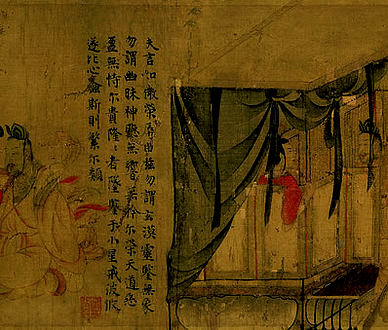 夫言如微榮辱由茲勿謂玄漠靈鑒無象
勿謂幽昧神聽無響無矜尔榮天道惡
盈無恃尔貴隆〻者墜鑒于小星戒彼攸
遂比心螽斯則繁尔類